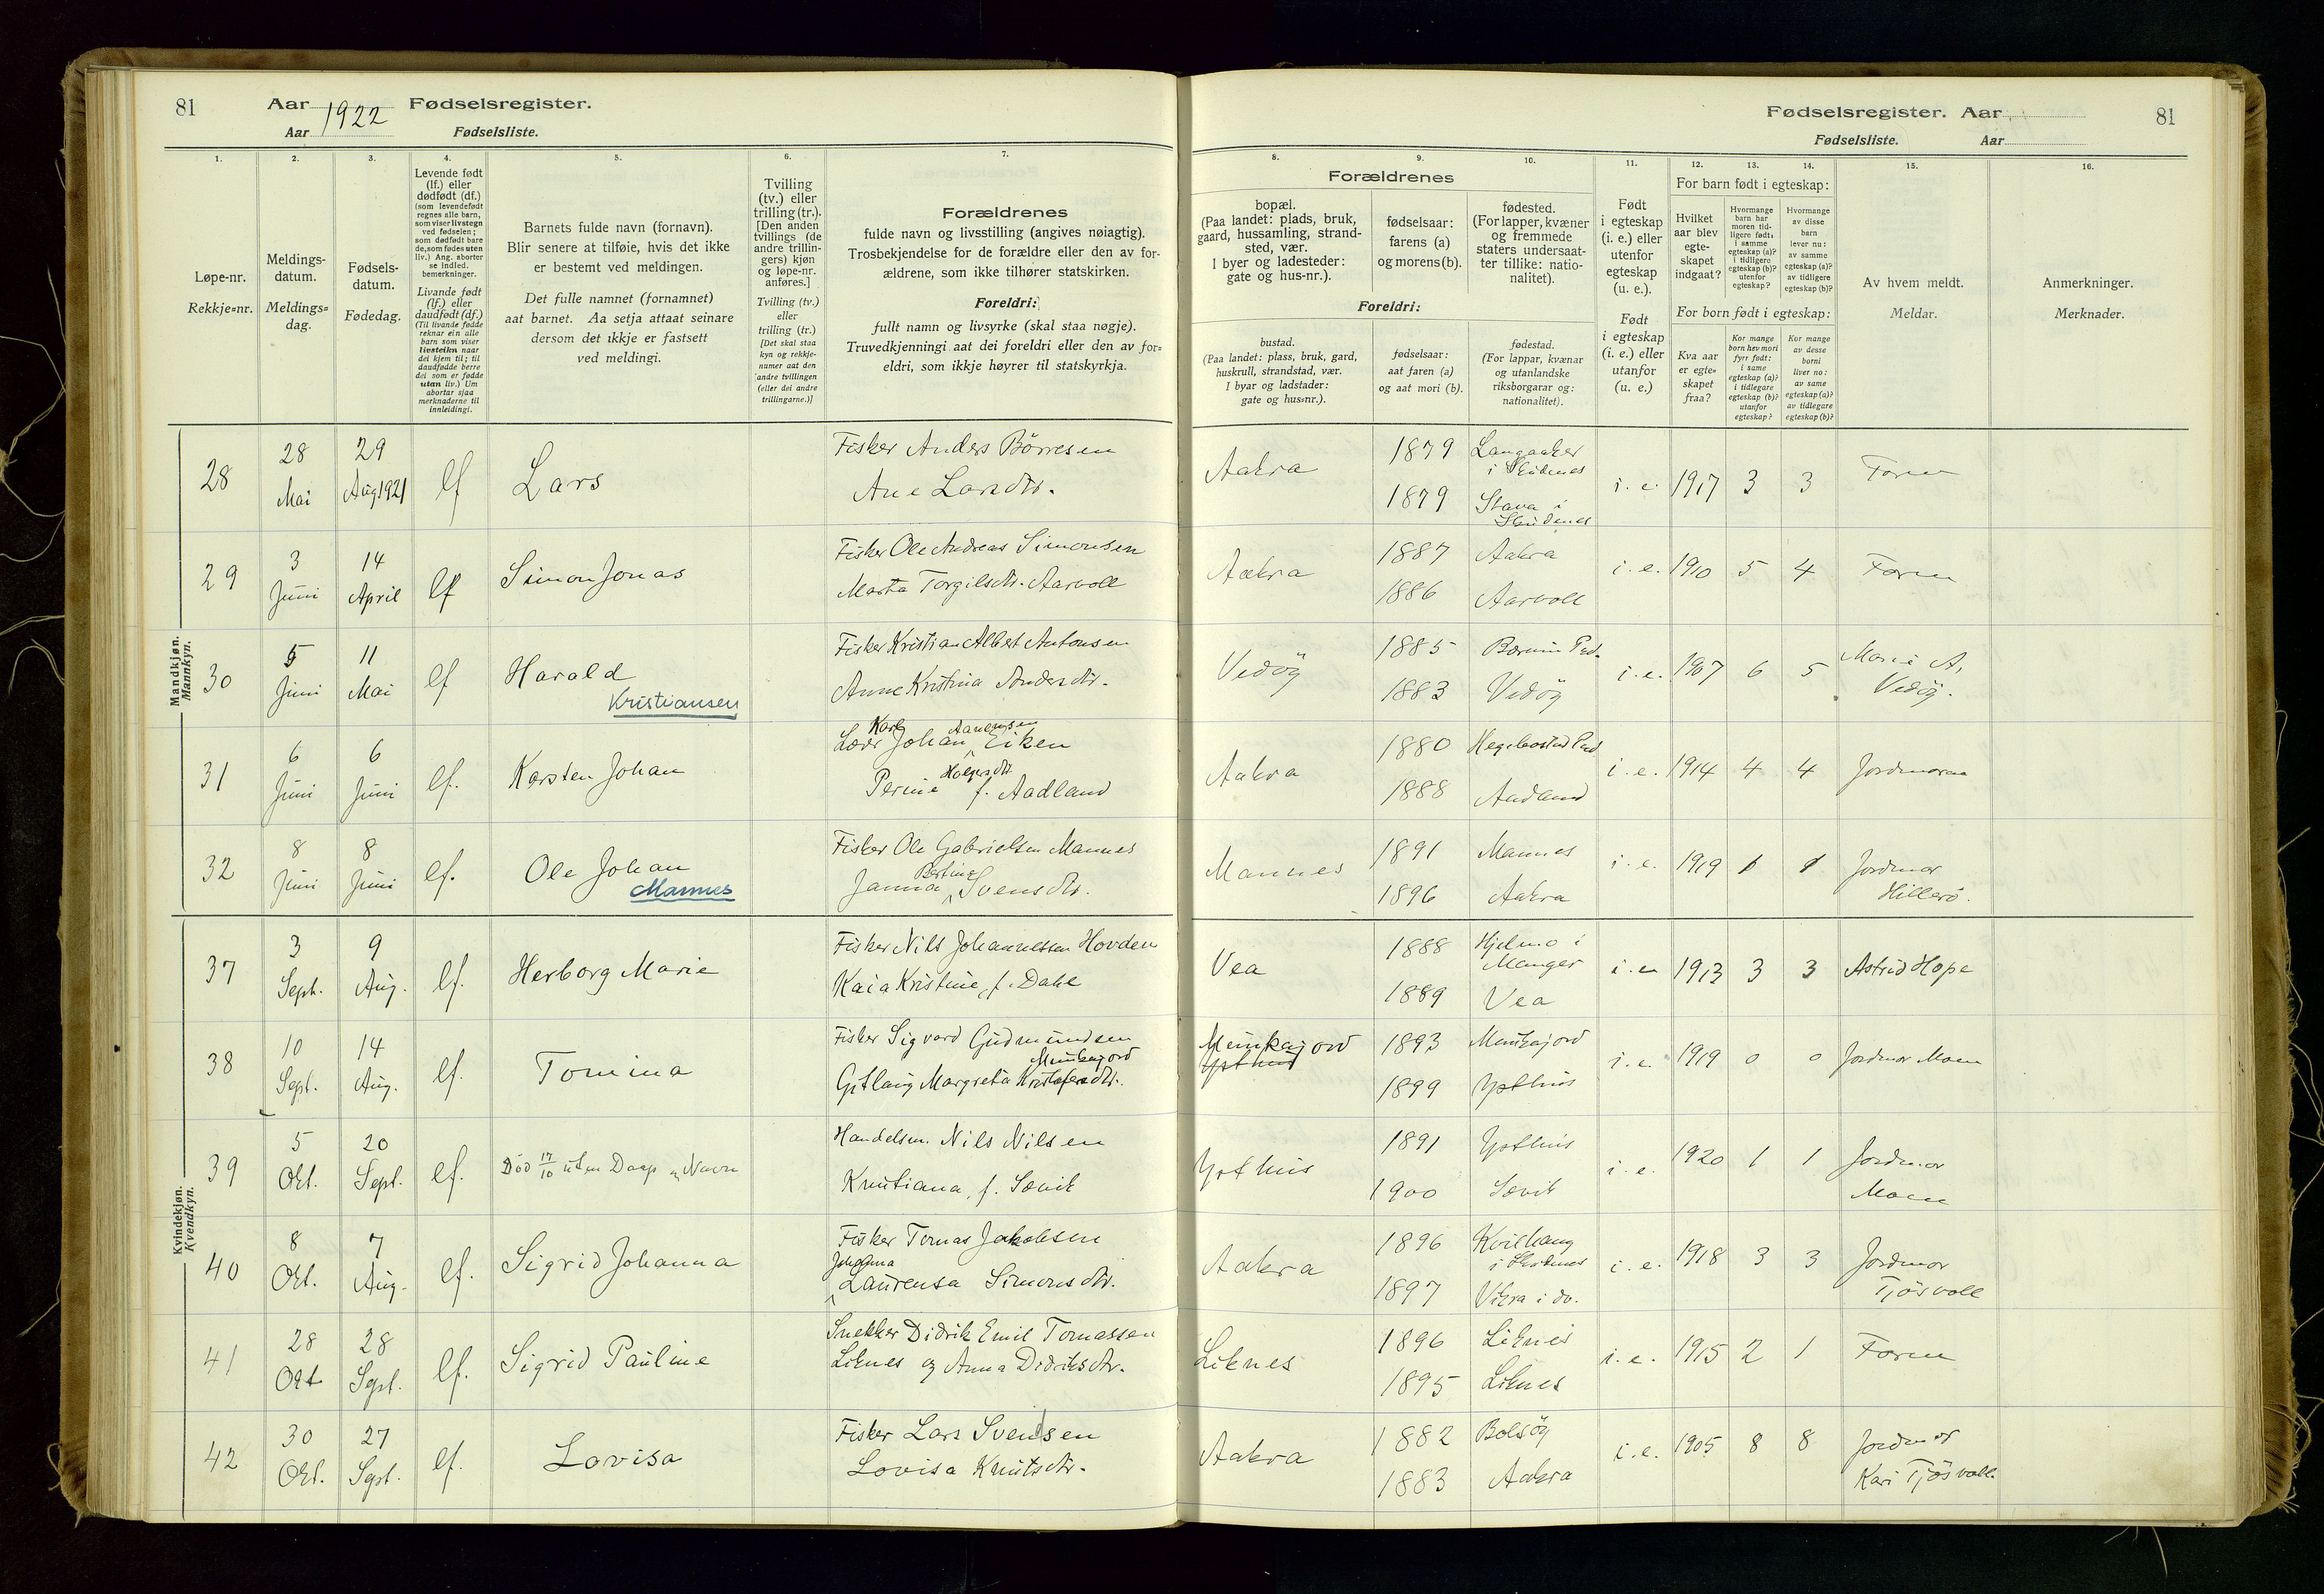 81 Aar 1922 Fødselsregister.
Aar Fødselsliste.
Fødselsregister. Aar 81
Fødselsliste. Aar
1. 2. 3. 4. 5. 6. 7.
8. 9. 10. 11. 12. 13. 14. 15. 16.
Løpe-nr.
Rekkje=nr.
Meldings-
datum.
Meldings=
dag.
Fødsels-
datum.
Fødedag.
Levende født
(lf.) eller
dødfødt (df.)
(som levendefødt
regnes alle barn,
som viser livstegn
ved fødselen;
som dødfødt bare
de, som fødes uten
liv.) Ang. aborter
se indled.
bemerkninger.
Livande født
(lf.) eller
daudfødt (df.)
(Til livande fødde
reknar ein alle
barn som viser
livsteikn naar
dei kjem til; til
daudfødde berre
dei som er fødde
utan liv.) Um
abortar sjaa
merknaderne til
innleidingi.
Barnets fulde navn (fornavn).
Blir senere at tilføie, hvis det ikke
er bestemt ved meldingen.
Det fulle namnet (fornamnet)
aat barnet. Aa setja attaat seinare
dersom det ikkje er fastsett
ved meldingi.
Tvilling
(tv.) eller
trilling (tr.).
[Den anden
tvillings (de
andre trillin-
gers) kjøn
og løpe-nr.
anføres.]
Tvilling (tv.)
eller
trilling (tr.)
[Det skal staa
kyn og rekkje-
numer aat den
andre tvillingen
(eller dei andre
trillingarne.)]
Forældrenes
fulde navn og livsstilling (angives nøiagtig).
Trosbekjendelse for de forældre eller den av for-
ældrene, som ikke tilhører statskirken.
Foreldri:
fullt namn og livsyrke (skal staa nøgje).
Truvedkjenningi aat dei foreldri eller den av for=
eldri, som ikkje høyrer til statskyrkja.
Forældrenes
bopæl.
(Paa landet: plads, bruk,
gaard, hussamling, strand-
sted, vær.
I byer og ladesteder:
gate og hus-nr.).
fødselsaar:
farens (a)
og morens (b).
fødested.
(For lapper, kvæner
og fremmede
staters undersaat-
ter tillike: natio-
nalitet).
Foreldri:
bustad.
(Paa landet: plass, bruk, gard,
huskrull, strandstad, vær.
I byar og ladstader:
gate og hus=nr.).
fødselsaar:
aat faren (a)
og aat mori (b).
fødestad.
(For lappar, kvænar
og utanlandske
riksborgarar og:
nationalitet).
Født
i egteskap
(i. e.) eller
utenfor
egteskap
(u. e.).
Født
i egteskap
(i. e.) eller
utanfor
(u. e.)
For barn født i egteskap:
Hvilket
aar blev
egte-
skapet
indgaat?
Hvormange
barn har
moren tid-
ligere født:
i samme
egteskap (a)?
i tidligere
egteskap (b)?
utenfor
egteskap?
Hvormange
av disse
barn
lever nu:
av samme
egteskap (a)?
av tidligere
egteskap (b)?
For born født i egteskap:
Kva aar
er egte=
skapet
fraa?
Kor mange
born hev mori
fyrr født:
i same
egteskap (a)?
i tidlegare
egteskap (b)?
utanfor
egteskap?
Kor mange
av desse
borni
liver no:
av same
egteskap (a)?
av tidlegare
egteskap (b)?
Av hvem meldt.
Meldar.
Anmerkninger.
Merknader.
Mandkjøn.
Mannkyn.
28 28 Mai 29 Aug 1921 lf Lars
Fisker Anders Börresen
Ane Larsdtr.
Aakra 1879 Langaaker i Skudenes
1879 Stava i Skudenes
i. e. 1917 3 3 Faren
29 3 Juni 14 April lf Simon Jonas
Fisker Ole Andreas Simonsen
Marta Torgilsdtr. Aarvoll
Aakra 1887 Aakra
1886 Aarvoll
i. e. 1910 5 4 Faren
30 5 Juni 11 Mai lf Harald
Kristiansen
Fisker Kristian Albert Antonsen
Anne Kristina Andersdtr.
Vedöy 1885
1883 Vedöy
i. e. 1907 6 5 Marie A. Vedöy.
31 6 Juni 6 Juni lf. Karsten Johan
Karl Aanensen
Johan Eiken
Holgersdtr.
Perine f. Aadland
Aakra 1880 Hegebostad
1888 Aadland
i. e. 1914 4 4 Jordmoren
32 8 Juni 8 Juni lf. Ole Johan
Mannes
Fisker Ole Gabrielsen Mannes
Bertine
Janna Svensdtr.
Mannes 1891 Mannes
1896 Aakra
i. e. 1919 1 1 Jordmor
Hillerö.
Kvindekjøn.
Kvendkyn.
37 3 Sept. 9 Aug. lf. Herborg Marie
Fisker Nils Johannessen Hovden
Kaia Kristine, f. Dale
Vea 1888 Hjelmo i Manger
1889 Vea
i. e 1913 3 3 Astrid Hope
38 10 Sept. 14 Aug. lf. Tomina
Fisker Sigvard Gudmundsen
Munkajord
Gitlaug Margreta Kristofersdtr.
Munkajord
1893 Munkajord
1899 Ysthus
i. e. 1919 0 0 Jordmor Moen
39 5 Okt. 20 Sept. lf. Död 17/10 uten Daap og Navn
Handelsm. Nils Nilsen
Kristiana, f. Sævik
Ysthus 1891 Ysthus
1900 Sævik
i. e. 1920 1 1 Jordmor
Moen
40 8 Okt. 7 Aug. lf. Sigrid Johanna
Fisker Tomas Jakobsen
Johanna
Laurensa Simonsdtr.
Aakra 1896 Kvilhaug i Skudenes
1897 Vikra i do.
i. e. 1918 3 3 Jordmor
Tjösvoll
41 28 Okt 28 Sept. lf. Sigrid Pauline
Snekker Didrik Emil Tomassen
Liknes og Anna Didriksdtr.
Liknes 1896 Liknes
1895 Liknes
i. e. 1915 2 1 Faren
42 30 Okt. 27 Sept. lf. Lovisa
Fisker Lars Svendsen
Lovisa Knutsdtr.
Aakra 1882 Bolsöy
1883 Aakra
i. e. 1905 8 8 Jordmor
Kari Tjösvoll.